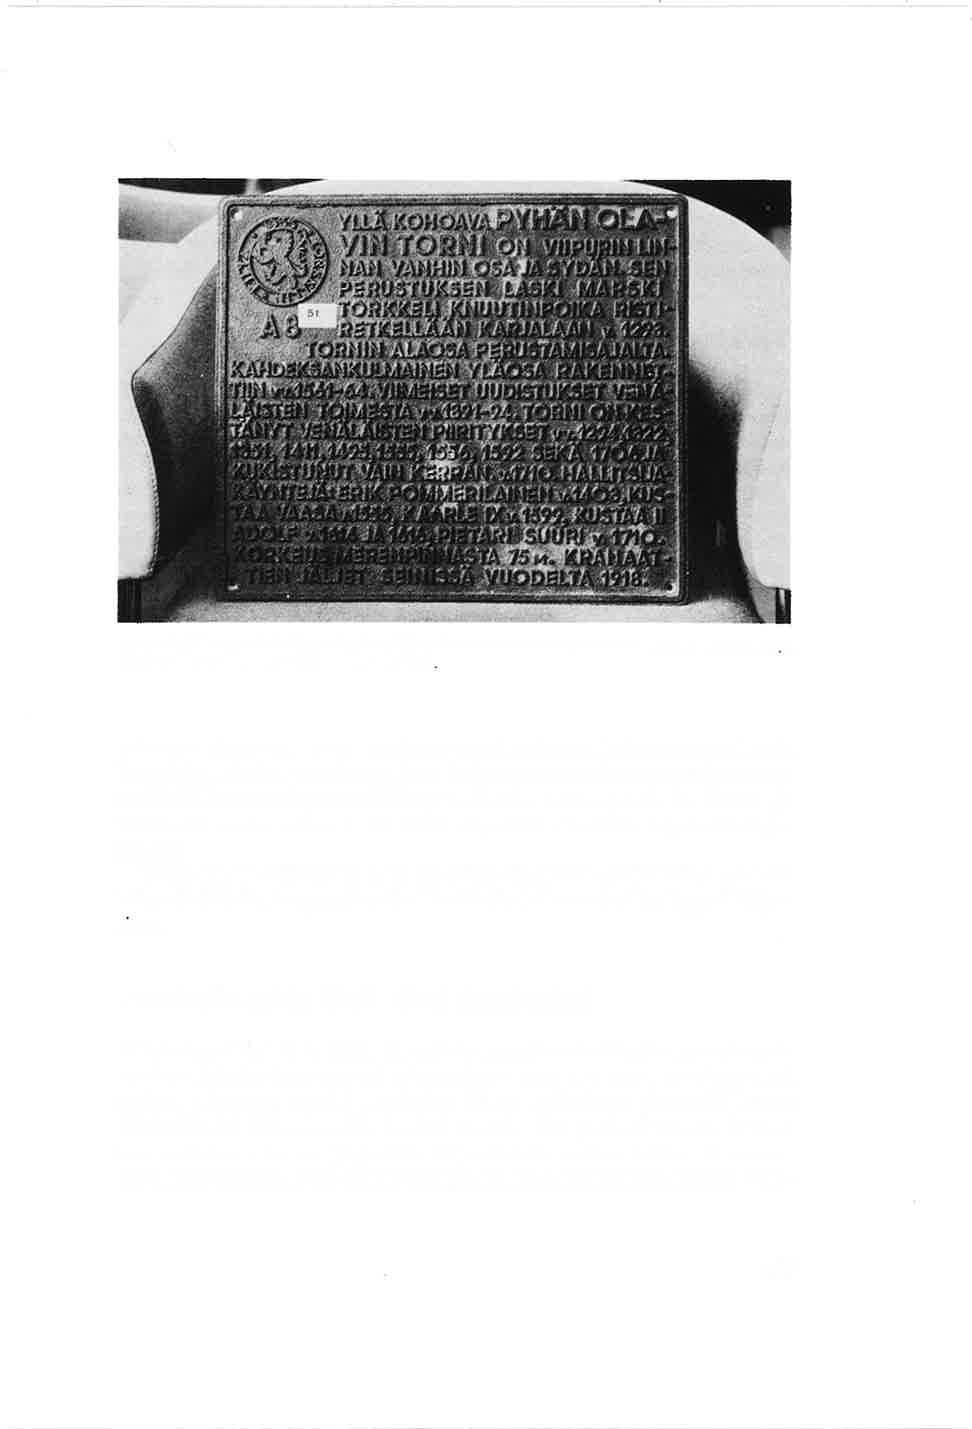 YLLÄ KOHOAVA PYHÄN OLA-
VIN TORNI ON VIIPURIN LIN-
NAN VANHIN OSA JA SYDÄN. SEN
PERUSTUKSEN LASKI MARSKI
TORKKELI KNUUTINPOIKA RISTI-
A8 51 RETKELLÄÄN KARJALAAN v. 1293.
TORNIN ALAOSA PERUSTAMISAJALTA.
KAHDEKSANKULMAINEN YLÄOSA RAKENNET-
TIIN vv. 1561-64. VIIMEISET UUDISTUKSET VENÄ-
LÄISTEN TOIMESTA vv. 1891-94. TORNI ON KES-
TÄNYT VENÄLÄISTEN PIIRITYKSET vv. 1294, 1322,
1351, 1411, 1495, 1556, 1592 SEKÄ 1706 JA
KUKISTUNUT VAIN KERRAN, v. 1710. HALLITSIJA-
KÄYNTEJÄ: ERIK POMMERILAINEN v. 1403, KUS-
TAA VAASA v. 1555, KAARLE IX v. 1599, KUSTAA II
ADOLF v. 1614 JA 1616, PIETARI SUURI v. 1710.
KORKEUS MERENPINNASTA 75 m. KRANAAT-
TIEN JÄLJET SEINISSÄ VUODELTA 1918.